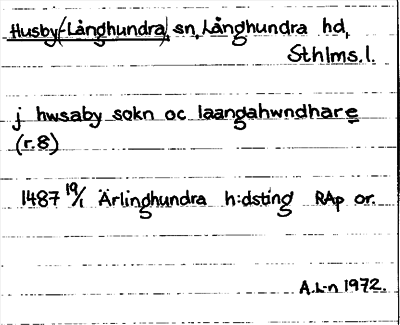 Husby(-Långhundra), sn, Långhundra hd,
Sthlms. l.
j hwsaby sokn oc laangahwndhare
(r. 8)
1487 19/1 Ärlinghundra h:dsting RAp or.
A.L-n 1972.